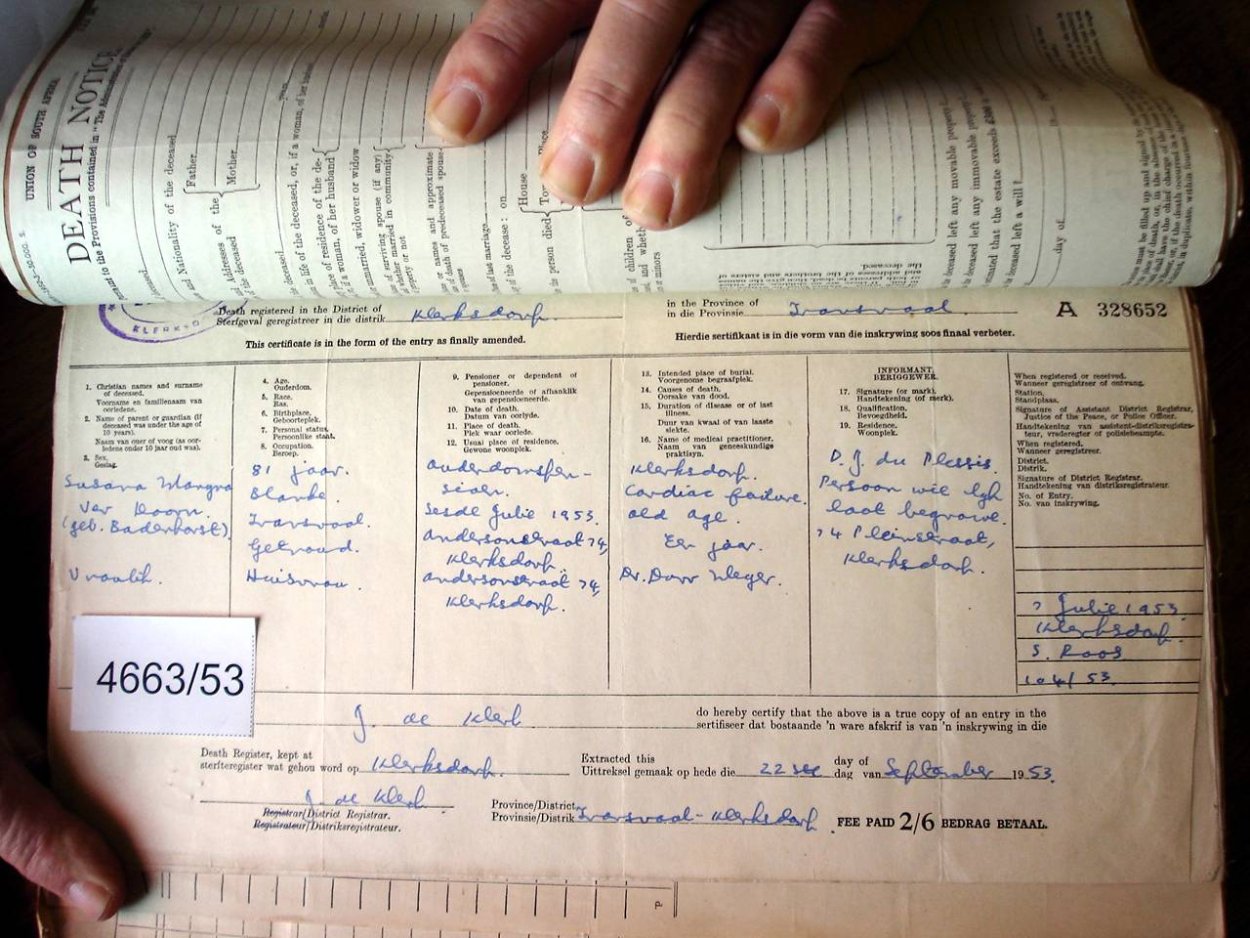 UNION OF SOUTH AFRICA
DEATH NOTICE
to the Provisions contained in "The Administration
Nationality of the deceased
Father
Mother
Addresses of the
deceased
deceased, or, if a woman, of her
residence of the de-
woman, of her husband
married, widower or widow
surviving spouse (if any)
whether married in community
property or not
names and approximate
death of predeceased spouse
last marriage
the decease: on
House
the person died
children of
minors
deceased left any movable property
deceased left any immovable property
mated that the estate exceeds
deceased left a will?
day of
Death registered in the District of
Sterfgeval geregistreer in die distrik Klerksdorp.
in the Province of
in die Provinsie Transvaal.
A 328652
This certificate is in the form of the entry as finally amended.
Hierdie sertifikaat is in die vorm van die inskrywing soos finaal verbeter.
1. Christian names and surname of deceased.
Voorname en familienaam van oorledene.
2. Name of parent or guardian (if deceased was under the age of 10 years).
Naam van ouer of voog (as oorledene onder 10 jaar oud was).
3. Sex.
Geslag.
4. Age.
Ouderdom.
5. Race.
Ras.
6. Birthplace.
Geboorteplek.
7. Personal status.
Persoonlike staat.
8. Occupation.
Beroep.
9. Pensioner or dependent of pensioner.
Gepensioeneerde of afhanklik van gepensioeneerde.
10. Date of death.
Datum van oorlyde.
11. Place of death.
Plek waar oorlede.
12. Usual place of residence.
Gewone woonplek.
13. Intended place of burial.
Voorgenome begraafplek.
14. Causes of death.
Oorsake van dood.
15. Duration of disease or of last illness.
Duur van kwaal of van laaste siekte.
16. Name of medical practitioner.
Naam van geneeskundige praktisyn.
INFORMANT.
BERIGGEWER.
17. Signature (or mark).
Handtekening (of merk).
18. Qualification.
Bevoegdheid.
19. Residence.
Woonplek.
When registered or received.
Wanneer geregistreer of ontvang.
Station.
Standplaas.
Signature of Assistant District Registrar, Justice of the Peace, or Police Officer.
Handtekening van assistent-distriksregistrateur, vrederegter of polisiebeampte.
When registered.
Wanneer geregistreer.
District.
Distrik.
Signature of District Registrar.
Handtekening van distriksregistrateur.
No. of Entry.
No. van inskrywing.
Susara
Ver Doorn.
(geb. Badenhorst)
Vroulik.
81 jaar.
Blanke.
Transvaal.
Getroud.
Huisvrou.
ouderdomspen-
sioen.
Sesde Julie 1953.
Andersonstraat 74,
Klerksdorp.
Andersonstraat 74,
Klerksdorp.
Klerksdorp.
Cardiac failure.
Old age.
Een jaar.
Dr.
D. J. du Plessis.
Persoon wie lyk
laat begrawe.
74 Pleinstraat,
Klerksdorp.
7 Julie 1953
Klerksdorp.
S. Roos
104/53
4663/53
J. de Klerk
do hereby certify that the above is a true copy of an entry in the
sertifiseer dat bostaande 'n ware afskrif is van 'n inskrywing in die
Death Register, kept at
sterfteregister wat gehou word op Klerksdorp.
Extracted this 22ste day of September 1953.
Uittreksel gemaak op hede die dag van
J. de Klerk
Registrar/District Registrar.
Registrateur/Distriksregistrateur.
Province/District
Provinsie/Distrik Transvaal - Klerksdorp
FEE PAID 2/6 BEDRAG BETAAL.